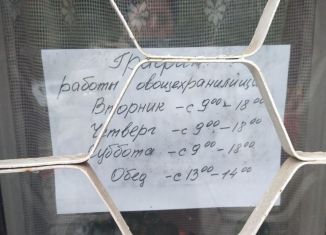 График
работы овощехранилища
Вторник - с 9⁰⁰ - 18⁰⁰
Четверг - с 9⁰⁰ - 18⁰⁰
Суббота - с 9⁰⁰ - 18⁰⁰
Обед - с 13⁰⁰ - 14⁰⁰